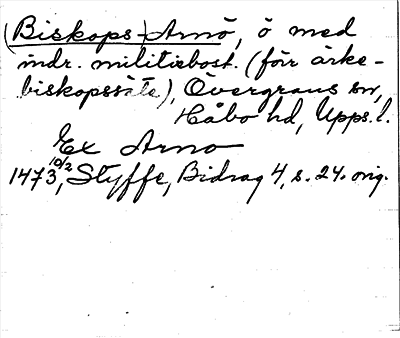 (Biskops-)Arnö, ö med
indr. militiebost. (för ärke-
biskopssäte), Övergrans sn,
Håbo hd, Upps. l.
Ex Arno
1473 10/2, Styffe, Bidrag 4, s. 24. orig.